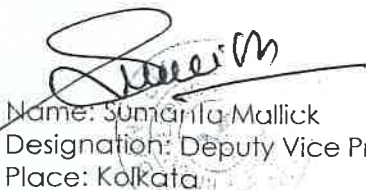 Name: Sumanta Mallick
Designation: Deputy Vice Pr
Place: Kolkata